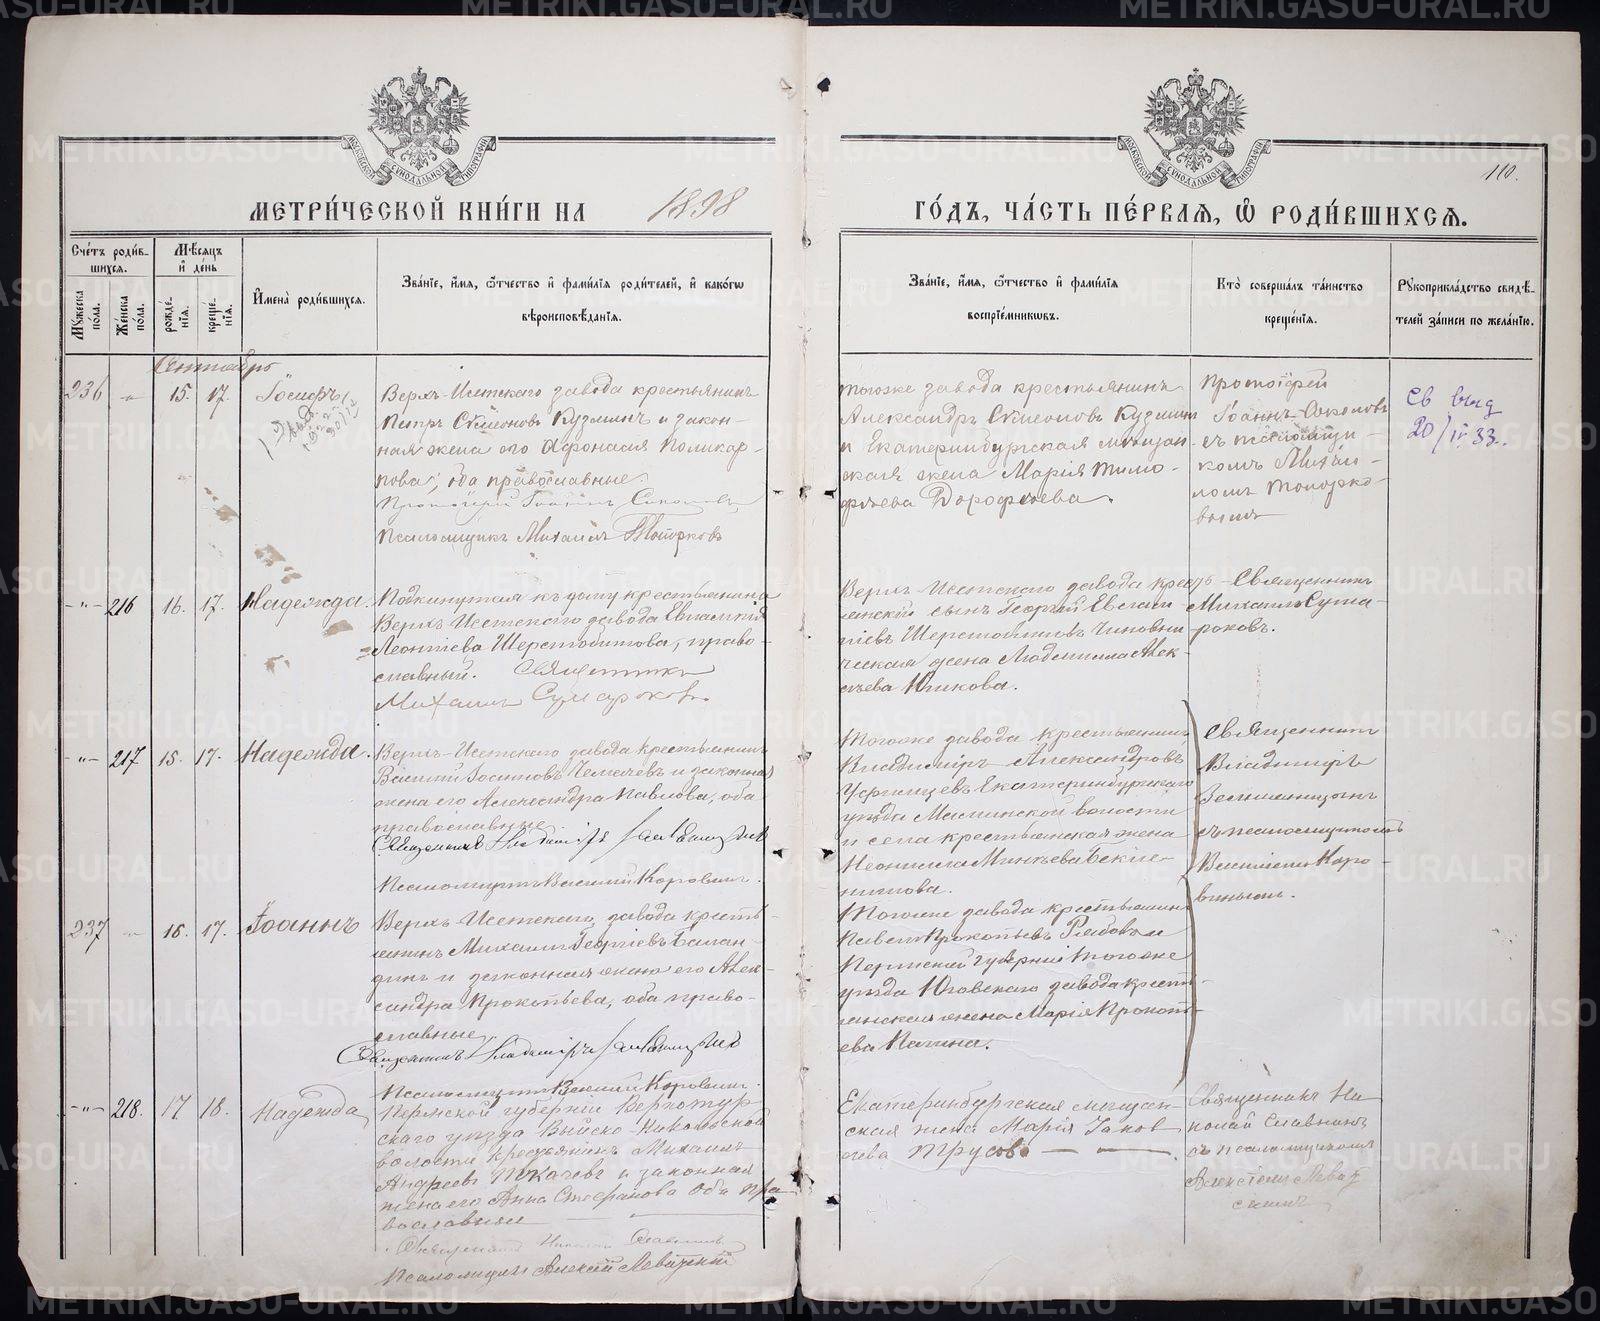 110.
МЕТРИ́ЧЕСКОЙ КНИ́ГИ НА 1898
ГО́ДЪ, ЧА́СТЬ ПЕ́РВАѦ, Ѡ҆ РОДИ́ВШИХСѦ.
Сче́тъ роди́в-
шихся.
Мѣ́сяцъ
и҆ де́нь
Му́жеска по́ла.
Же́нска по́ла.
рожде́-
нїя.
креще́-
нїя.
И҆мена̀ роди́вшихся.
Зва́нїе, и҆́мя, ѻ҆́тчество и҆ фами́лїя роди́телей, и҆ како́гѡ
вѣроисповѣ́данїя.
Зва́нїе, и҆́мя, ѻ҆́тчество и҆ фами́лїя
воспрїе́мникѡвъ.
Кто̀ соверша́лъ та́инство
креще́нїя.
Рꙋкоприкла́дство свидѣ́-
телей за́писи по жела́нїю.
Сентябрь
236 -"- 15. 17. Іосифъ
Верхъ-Исетскаго завода крестьянинъ
Петръ Сѵмеоновъ Кузминъ и закон-
ная жена его Афонасія Поликар-
пова; оба православные.
Протоіерей Іоаннъ Соколовъ
Псаломщикъ Михаилъ Топорковъ
тогоже завода крестьянинъ
Александръ Сѵмеоновъ Кузминъ
и Екатеринбургская мѣщан-
ская жена Марія Тимо-
феева Дорофеева.
Протоіерей
Іоаннъ Соколовъ
съ псаломщи-
комъ Михаи-
ломъ Топорко-
вымъ
Св выд
20/IV 33.
-"- 216 16. 17. Надежда.
Подкинутая къ дому крестьянина
Верхъ-Исетскаго завода
Леонтіева Шерстобитова, право-
славный. Священникъ
Михаилъ Сумароковъ.
Верхъ-Исетскаго завода кресть-
янскій сынъ Георгій
Шерстобитовъ Чиновни-
ческая жена Людмила Алек-
сѣева
Священникъ
Михаилъ Сума-
роковъ.
-"- 217 15. 17. Надежда.
Верхъ-Исетскаго завода крестьянинъ
Василій и законная
жена его Александра Павлова, оба
православные
Священникъ Владиміръ
Псаломщикъ Василій Коровинъ.
Тогоже завода крестьянинъ
Владиміръ Александровъ
Екатеринбургскаго
уѣзда волости
и села крестьянская жена
Священникъ
Владиміръ
съ псаломщикомъ
Василіемъ Коро-
винымъ.
237 -"- 16. 17. Іоаннъ
Верхъ-Исетскаго завода кресть-
янинъ Михаилъ Георгіевъ Балан-
динъ и законная жена его Алек-
сандра Прокопьева, оба право-
славные.
Священникъ Владиміръ
Псаломщикъ Василій Коровинъ.
Тогоже завода крестьянинъ
Павелъ Прокопьевъ Рябовъ и
Пермской губерніи тогоже
уѣзда Юговскаго завода кресть-
янская жена Марія Прокопь-
ева
-"- 218. 17 18. Надежда
Пермской губерніи Верхотур
скаго уѣзда Выйско-Никольской
волости крестьянинъ Михаилъ
Андреевъ Ткачевъ и законная
жена его Анна Стефанова оба пра
вославные
Священникъ Николай
Псаломщикъ Алексій Левитскій
Екатеринбургская мещан-
ская жена Марія Іаков
лева Трусова
Священникъ Ни
колай Славнинъ
съ псаломщикомъ
Алексѣемъ Левит
скимъ
METRIKI.GASO-URAL.RU